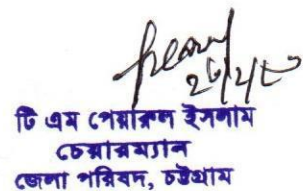 টি এম পেয়ারুল ইসলাম
চেয়ারম্যান
জেলা পরিষদ, চট্টগ্রাম